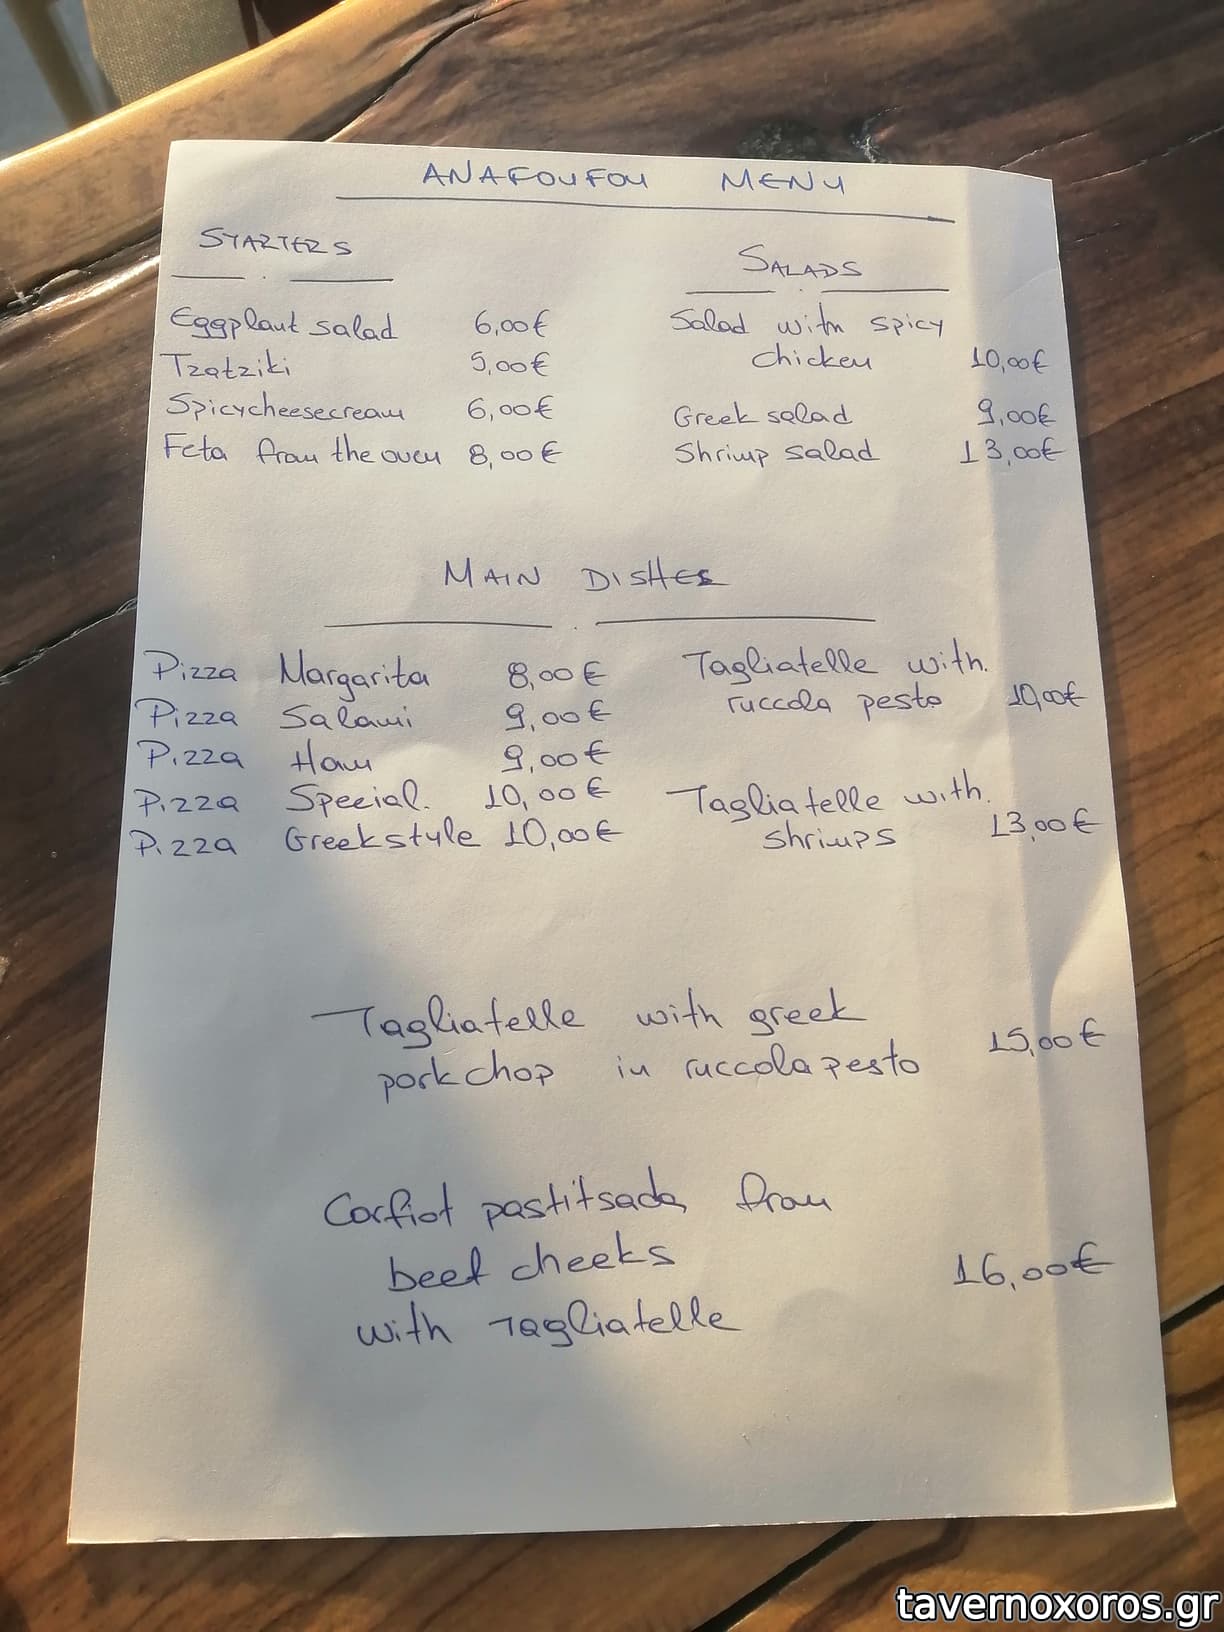 ANAFOUFOU MENU
STARTERS
Eggplant salad 6,00€
Tzatziki 5,00€
Spicycheesecream 6,00€
Feta from the oven 8,00€
SALADS
Salad with spicy
chicken 10,00€
Greek salad 9,00€
Shrimp salad 13,00€
MAIN DISHES
Pizza Margarita 8,00€
Pizza Salami 9,00€
Pizza Ham 9,00€
Pizza Special. 10,00€
Pizza Greekstyle 10,00€
Tagliatelle with.
ruccola pesto 10,00€
Tagliatelle with.
shrimps 13,00€
Tagliatelle with greek
porkchop in ruccola pesto 15,00€
Corfiot pastitsada from
beef cheeks 16,00€
with Tagliatelle
tavernoxoros.gr